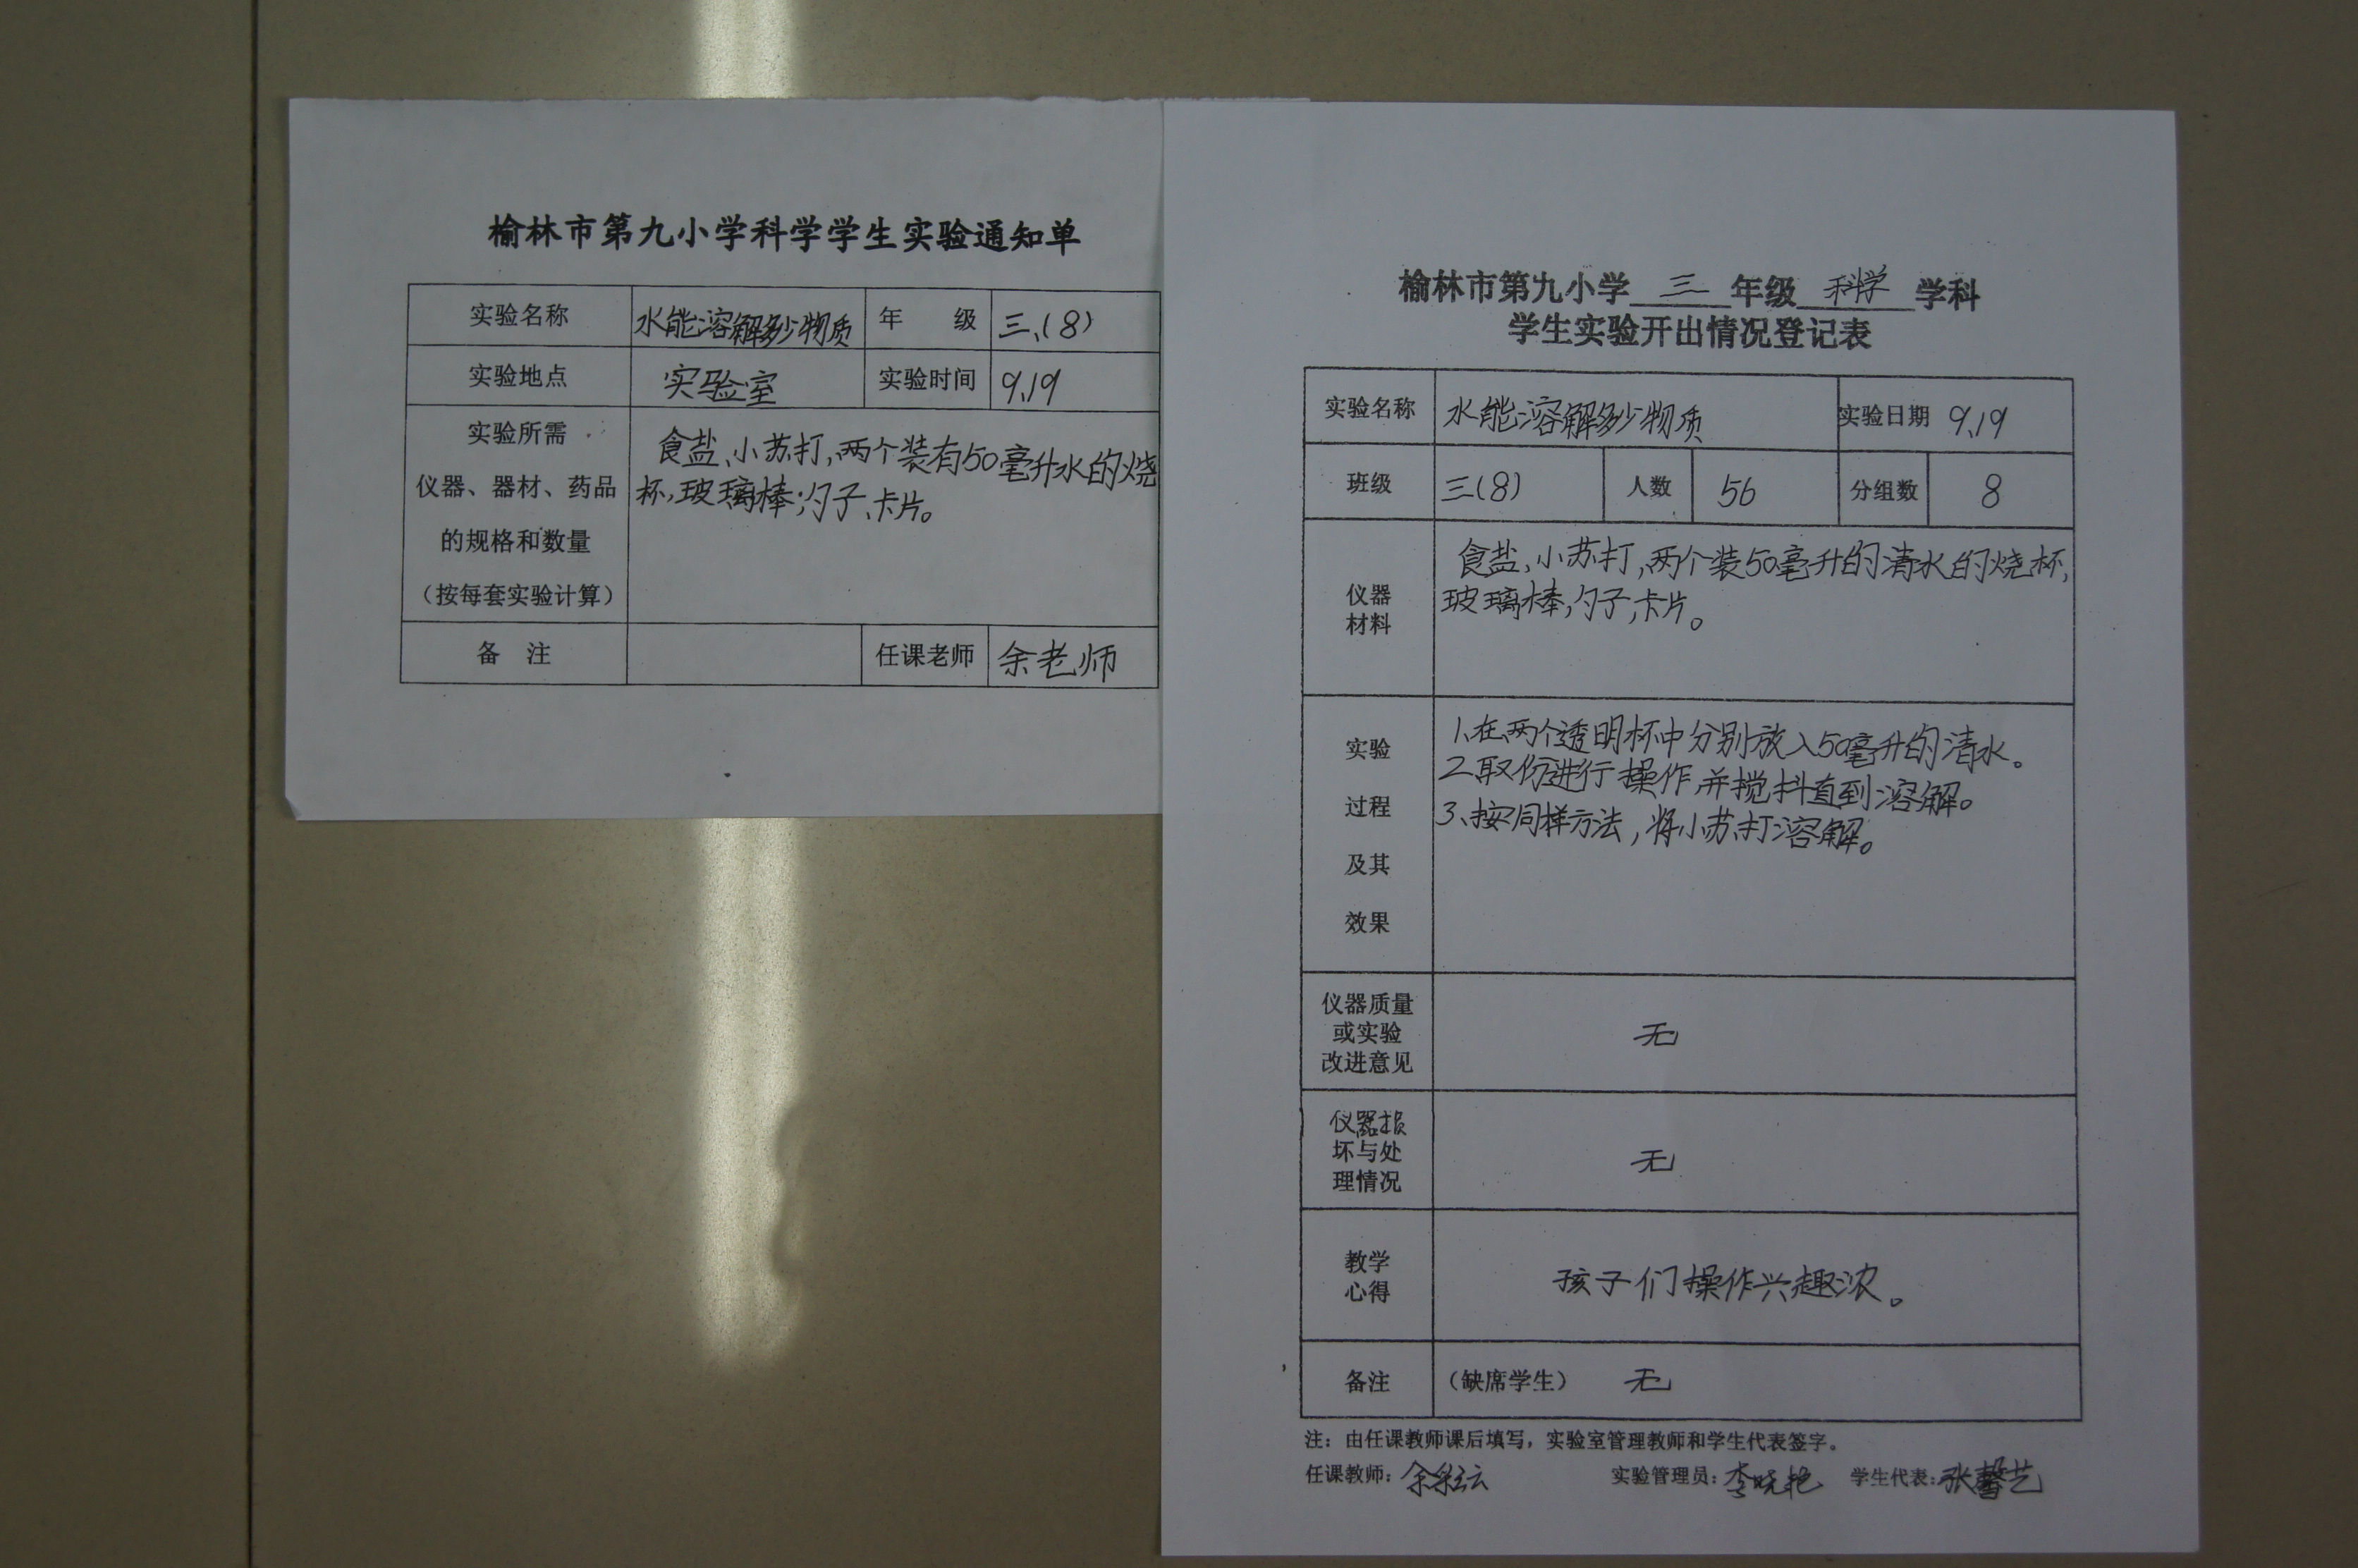 榆林市第九小学科学学生实验通知单
实验名称 水能溶解多少物质 年 级 三、(8)
实验地点 实验室 实验时间 9.19
实验所需
仪器、器材、药品
的规格和数量
(按每套实验计算)
食盐、小苏打,两个装有50毫升水的烧
杯,玻璃棒,勺子、卡片。
备 注 任课老师 余老师
榆林市第九小学 三 年级 科学 学科
学生实验开出情况登记表
实验名称 水能溶解多少物质 实验日期 9.19
班级 三(8) 人数 56 分组数 8
仪器
材料
食盐,小苏打,两个装50毫升的清水的烧杯,
玻璃棒,勺子,卡片。
实验
过程
及其
效果
1、在两个透明杯中分别放入50毫升的清水。
2、取份进行操作,并搅抖直到溶解。
3、按同样方法,将小苏打溶解。
仪器质量
或实验
改进意见
无
仪器损
坏与处
理情况
无
教学
心得
孩子们操作兴趣浓。
备注 (缺席学生) 无
注:由任课教师课后填写,实验室管理教师和学生代表签字。
任课教师: 余彩云 实验管理员: 李晓艳 学生代表: 张馨艺